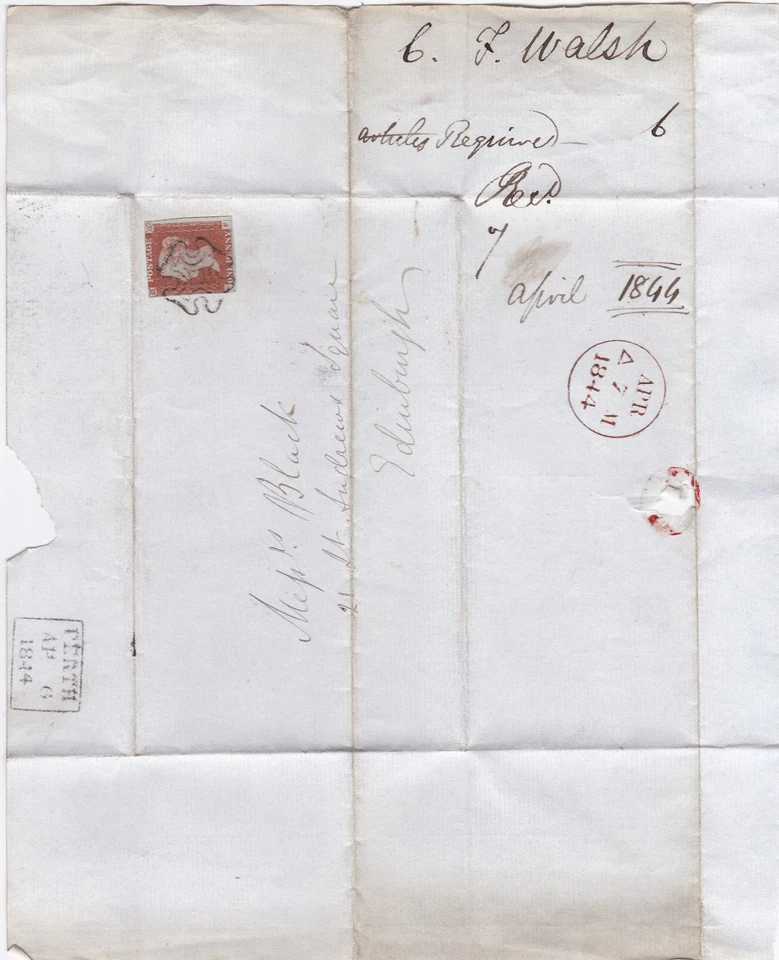 C. F. Walsh
articles Required — 6
Recd.
7
April 1844
POSTAGE
ONE PENNY
Messrs. Black
21 St. Andrews Square
Edinburgh
APR
7 M
A
1844
PERTH
AP 6
1844